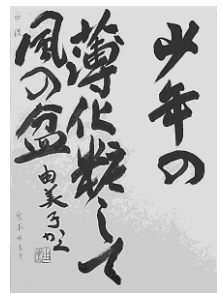 少年の
薄化粧して
風の盆
由美子かく